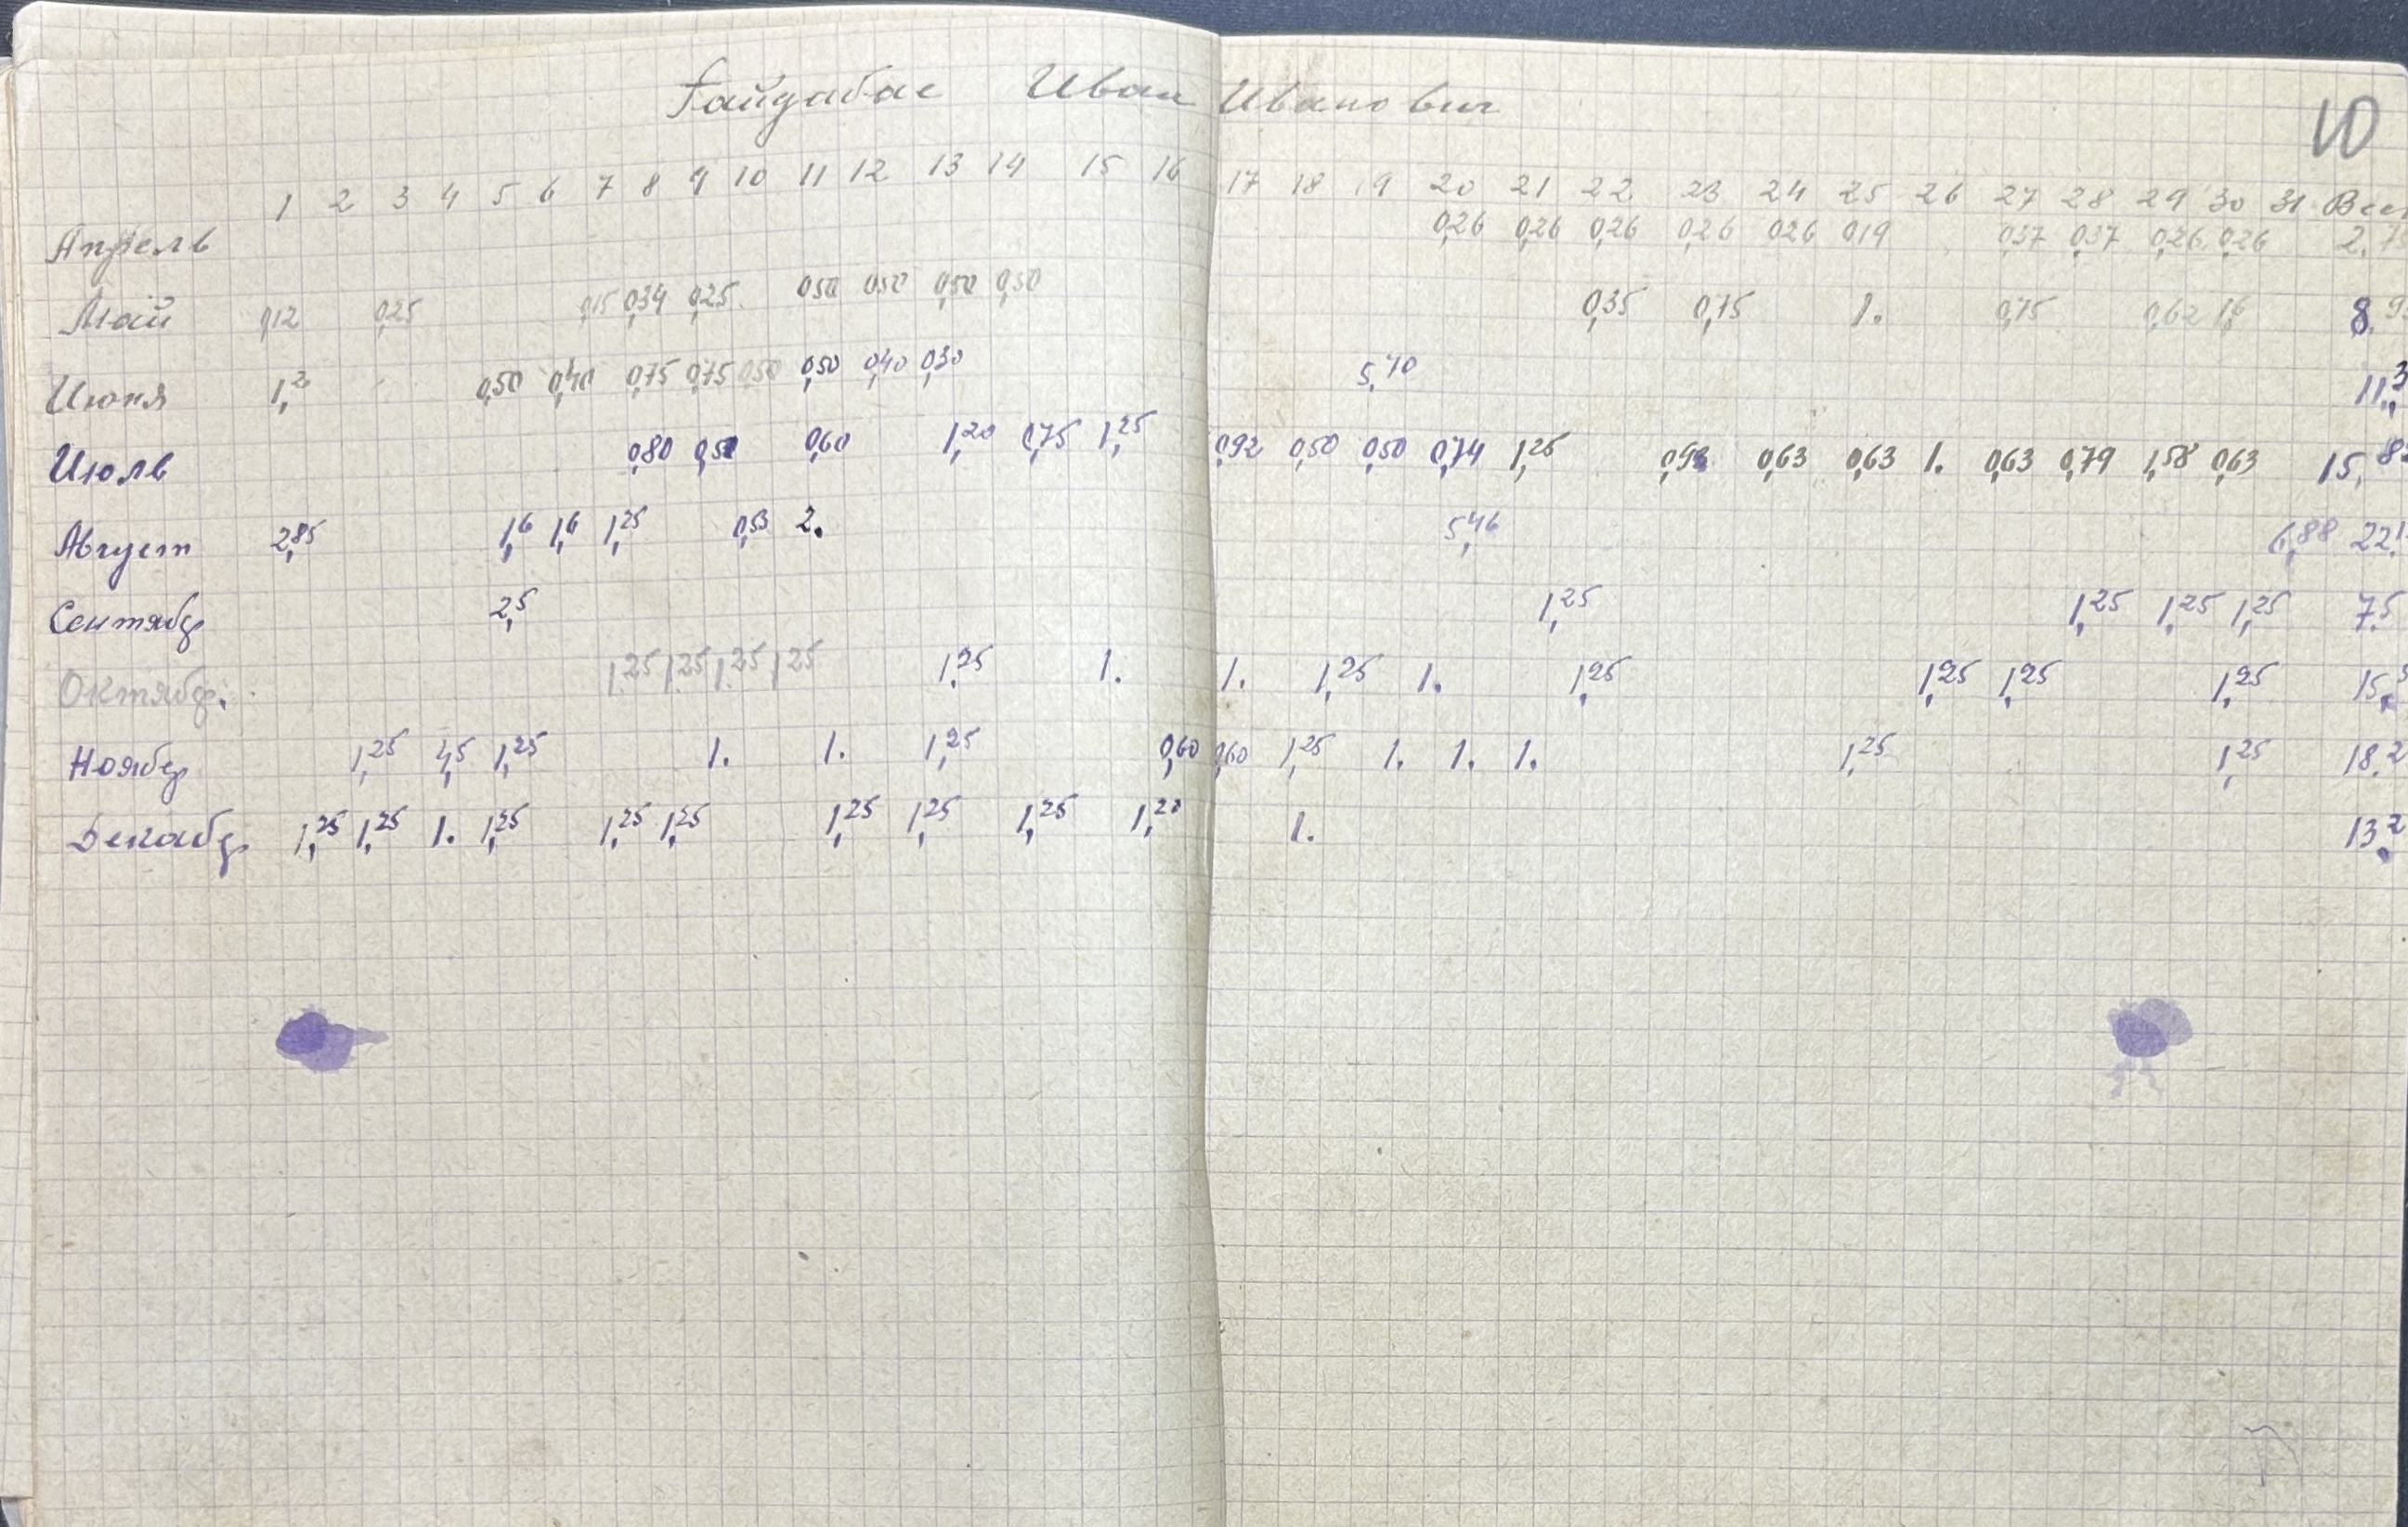 Гайдабас Иван Иванович
10
1 2 3 4 5 6 7 8 9 10 11 12 13 14 15 16 17 18 19 20 21 22 23 24 25 26 27 28 29 30 31 Все
Апрель 0,26 0,26 0,26 0,26 0,26 0,19 0,37 0,37 0,26 0,26 2,7
Май 0,12 0,25 0,15 0,34 0,25 0,50 0,50 0,50 0,50 0,35 0,75 1. 0,75 0,62 1,6 8,9
Июня 1,2 0,50 0,40 0,75 0,75 0,50 0,50 0,40 0,30 5,70 11,3
Июль 0,80 0,50 0,60 1,20 0,75 1,25 0,92 0,50 0,50 0,74 1,25 0,63 0,63 1. 0,63 0,79 1,58 0,63 15,8
Август 2,85 1,6 1,6 1,25 0,53 2. 5,46 6,88 22,1
Сентябр 2,5 1,25 1,25 1,25 1,25 7,5
Октябр. 1,25 1,25 1,25 1,25 1,25 1. 1. 1,25 1. 1,25 1,25 1,25 1,25 15,5
Ноябр 1,25 4,5 1,25 1. 1. 1,25 0,60 0,60 1,25 1. 1. 1. 1,25 1,25 18,2
Декабр 1,25 1,25 1. 1,25 1,25 1,25 1,25 1,25 1,25 1,20 1. 13,2